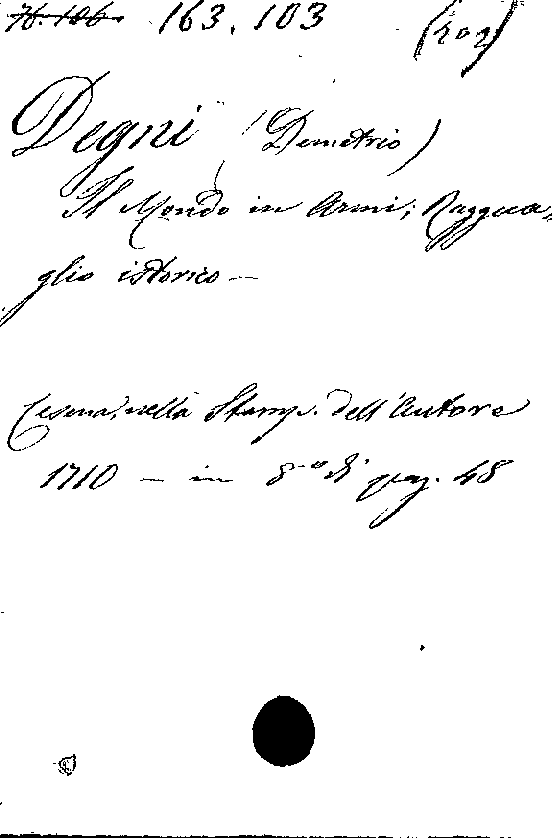 76.106. 163.103 (rog)
Degni (Demetrio)
Il Mondo in Armi; Raggua-
glio istorico —
Cesena, nella Stamp. dell'Autore
1710 — in 8º di pag. 48